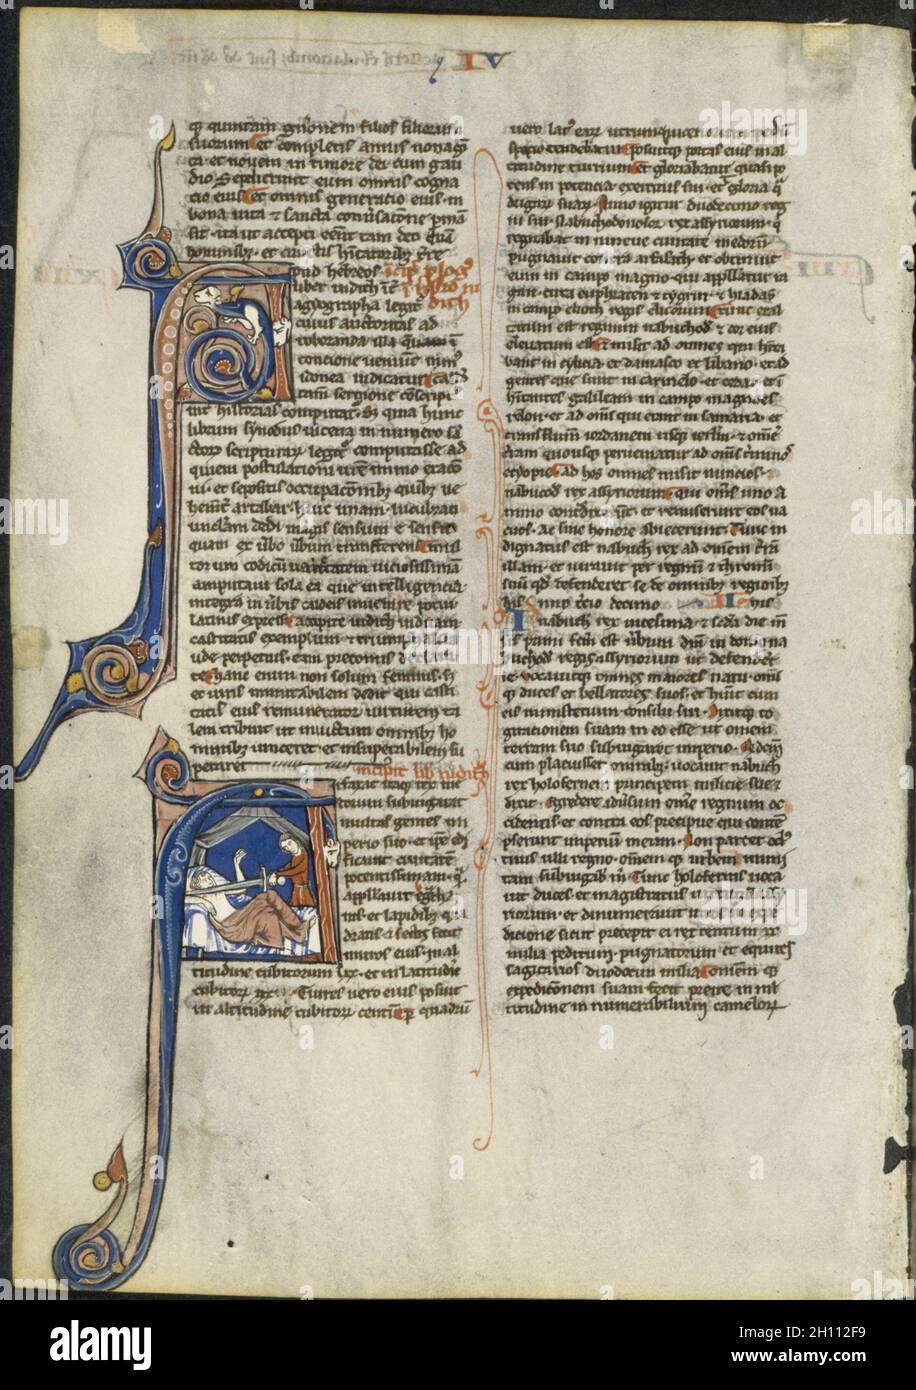 VI
que quintam generationem filios filiorum
suorum Et completis annis nonagin
ta et novem in timore dei cum gau
dio sepelierunt eum omnis cogna
cio eius Et omnis generatio eius in
bona vita et sancta conversacione perman
sit ita ut accepti essent tam deo quam
hominibus et cunctis habitatoribus terre
Apud hebreos incipit prologus
liber iudith inter in libro iu
agyographa legitur dith
cuius auctoritas ad
roboranda illa que in
contencione veniunt minus
idonea iudicatur Caldeo
tamen sermone conscriptus
inter historias computatur Sed quia hunc
librum synodus nicena in numero san
ctorum scripturarum legitur computasse ad
quievi postulationi vestre immo exactio
ni et sepositis occupacionibus quibus ve
hementer artabar hunc unam lucubrati
unculam dedi magis sensum e sensu
quam ex verbo verbum transferens Mul
torum codicum varietatem viciosissimam
amputavi sola ea que intelligencia
integra in verbis caldeis invenire potui
latinis expressi Accipite iudith viduam
castitatis exemplum et triumphali lau
de perpetuis eam preconiis declara
te hanc enim non solum feminis sed
et viris imitabilem dedit qui casti
tatis eius remunerator virtutem ta
lem tribuit ut invictum omnibus ho
minibus vinceret et insuperabilem su
peraret incipit liber iudith
Arfaxat itaque rex me
dorum subiugarat
multas gentes im
perio suo et ipse edi
ficavit civitatem
potentissimam quam
appellavit egbatha
nis ex lapidibus qua
dratis et sectis fecit
muros eius in al
titudine cubitorum lxx et in latitudine
cubitorum xxx Turres vero eius posuit
in altitudine cubitorum centum per quadrum
vero latus earum utrumque vicenorum pedum
spacio tendebatur posuitque portas eius in al
titudine turrium Et gloriabatur quasi po
tens in potencia exercitus sui et gloria qua
drigarum suarum Anno igitur duodecimo reg
ni sui nabuchodonosor rex assyriorum qui
regnabat in nineve civitate
pugnavit contra arfaxath et obtinuit
eum in campo magno qui appellatur ra
gau circa euphraten et tygrin et hiadas
in campo erioch regis elicorum Tunc exal
tatum est regnum nabuchodonosor et cor eius
elevatum est Et misit ad omnes qui habita
bant in cylicia et damasco et libano et ad
gentes que sunt in carmelo et cedar et in
habitantes galileam in campo magno es
relon et ad omnes qui erant in samaria et
trans flumen iordanem usque ierusalem et omnem
terram quousque perveniatur ad omnes terminos
ethyopie Ad hos omnes misit nuncios
nabucodonosor rex assyriorum qui omnes uno a
nimo contradixerunt et remiserunt eos va
cuos Ac sine honore abiecerunt Tunc in
dignatus est nabuchodonosor rex ad omnem terram
illam et iuravit per regnum et thronum
suum quod defenderet se de omnibus regionibus
his Anno tercio decimo II his
nabuchodonosor rex vicesima et secunda die mensis
primi factum est verbum domini in domo na
buchodonosor regis assyriorum ut defenderet
se vocavitque omnes maiores natu omnes
que duces et bellatores suos et habuit cum
eis ministerium consilii sui Dixitque co
gitacionem suam in eo esse ut omnem
terram suo subiugaret imperio Quod cum
cum placuisset omnibus vocavit nabuchodonosor
rex holofernen principem milicie sue et
dixit egredere adversum omne regnum oc
cidentis et contra eos precipue qui contem
pserunt imperium meum Non parcet oculus
tuus ulli regno omnemque urbem muni
tam subiugabis michi Tunc holofernes voca
vit duces et magistratus virtutis assy
riorum et dinumeravit viros in expe
dicione sicut precepit ei rex centum xx
milia peditum pugnatorum et equites
sagitarios duodecim milia Omnemque
expedicionem suam fecit preire in mul
titudine innumerabilium camelorum
alamy
Image ID: 2H112F9
www.alamy.com